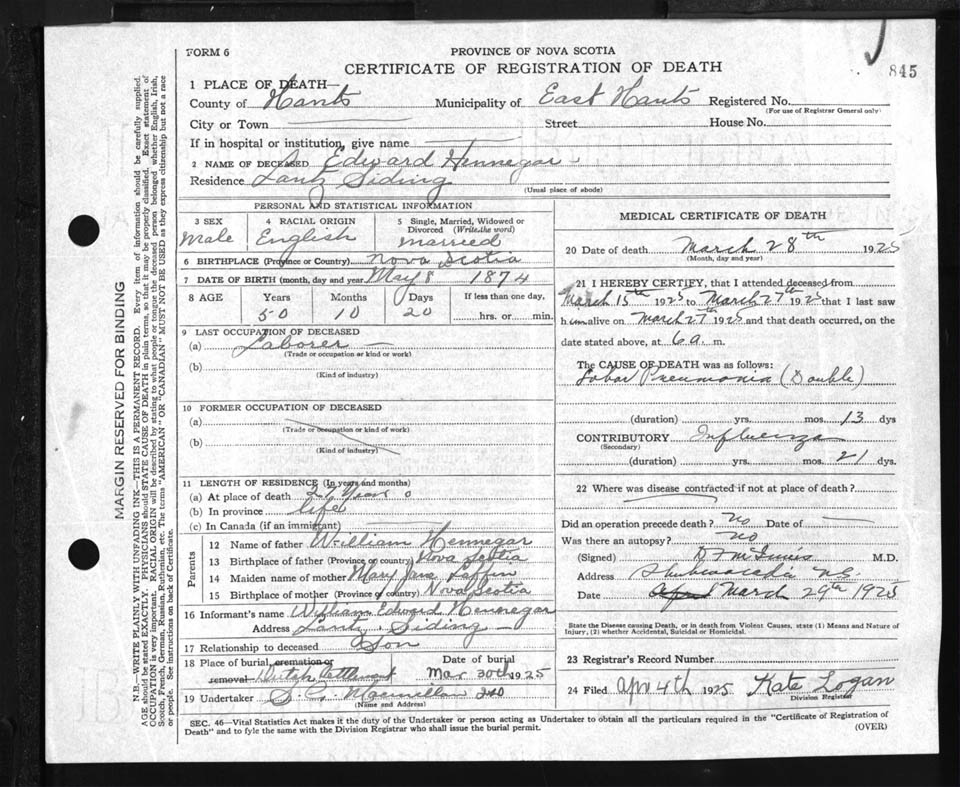 FORM 6
845
PROVINCE OF NOVA SCOTIA
CERTIFICATE OF REGISTRATION OF DEATH
MARGIN RESERVED FOR BINDING
N.B.—WRITE PLAINLY WITH UNFADING INK—THIS IS A PERMANENT RECORD. Every item of information should be carefully supplied.
AGE should be stated EXACTLY. PHYSICIANS should STATE CAUSE OF DEATH in plain terms, so that it may be properly classified. Exact statement of
OCCUPATION is very important. RACIAL ORIGIN will be described by stating to what people or tongue the deceased person belonged whether English, Irish,
Scotch, French, German, Russian, Ruthenian, etc. The terms "AMERICAN" OR "CANADIAN" MUST NOT BE USED as they express citizenship but not a race
or people. See instructions on back of Certificate.
1 PLACE OF DEATH—
County of Hants Municipality of East Hants Registered No.
(For use of Registrar General only)
City or Town Street House No.
If in hospital or institution, give name
2 NAME OF DECEASED Edward Hennegar
Residence Lantz Siding
(Usual place of abode)
PERSONAL AND STATISTICAL INFORMATION
3 SEX 4 RACIAL ORIGIN 5 Single, Married, Widowed or
Divorced (Write the word)
Male English Married
6 BIRTHPLACE (Province or Country) Nova Scotia
7 DATE OF BIRTH (month, day and year) May 8 1874
8 AGE Years Months Days If less than one day,
50 10 20 hrs. or min.
9 LAST OCCUPATION OF DECEASED
(a) Laborer
(Trade or occupation or kind or work)
(b)
(Kind of industry)
10 FORMER OCCUPATION OF DECEASED
(a)
(Trade or occupation or kind of work)
(b)
(Kind of industry)
11 LENGTH OF RESIDENCE (In years and months)
(a) At place of death Years
(b) In province life
(c) In Canada (if an immigrant)
Parents
12 Name of father William Hennegar
13 Birthplace of father (Province or country) Nova Scotia
14 Maiden name of mother Mary Jane
15 Birthplace of mother (Province or country) Nova Scotia
16 Informant's name William Edward Hennegar
Address Lantz Siding
17 Relationship to deceased Son
18 Place of burial, cremation or Date of burial
removal Dutch Settlement Mar 30th 1925
19 Undertaker Macmillan
(Name and Address)
MEDICAL CERTIFICATE OF DEATH
20 Date of death March 28th 1925
(Month, day and year)
21 I HEREBY CERTIFY, that I attended deceased from
March 15th 1925 to March 27th 1925 that I last saw
him alive on March 27th 1925 and that death occurred, on the
date stated above, at 6 a. m.
The CAUSE OF DEATH was as follows:
Lobar Pneumonia (Double)
(duration) yrs. mos. 13 dys
CONTRIBUTORY Influenza
(Secondary)
(duration) yrs. mos. 21 dys.
22 Where was disease contracted if not at place of death?
Did an operation precede death? no Date of
Was there an autopsy? no
(Signed) D F McInnis M.D.
Address Shubenacadie N.S.
Date April March 29th 1925
State the Disease causing Death, or in death from Violent Causes, state (1) Means and Nature of
Injury, (2) whether Accidental, Suicidal or Homicidal.
23 Registrar's Record Number
24 Filed Apr 4th 1925 Kate Logan
Division Registrar
SEC. 46—Vital Statistics Act makes it the duty of the Undertaker or person acting as Undertaker to obtain all the particulars required in the "Certificate of Registration of
Death" and to fyle the same with the Division Registrar who shall issue the burial permit. (OVER)